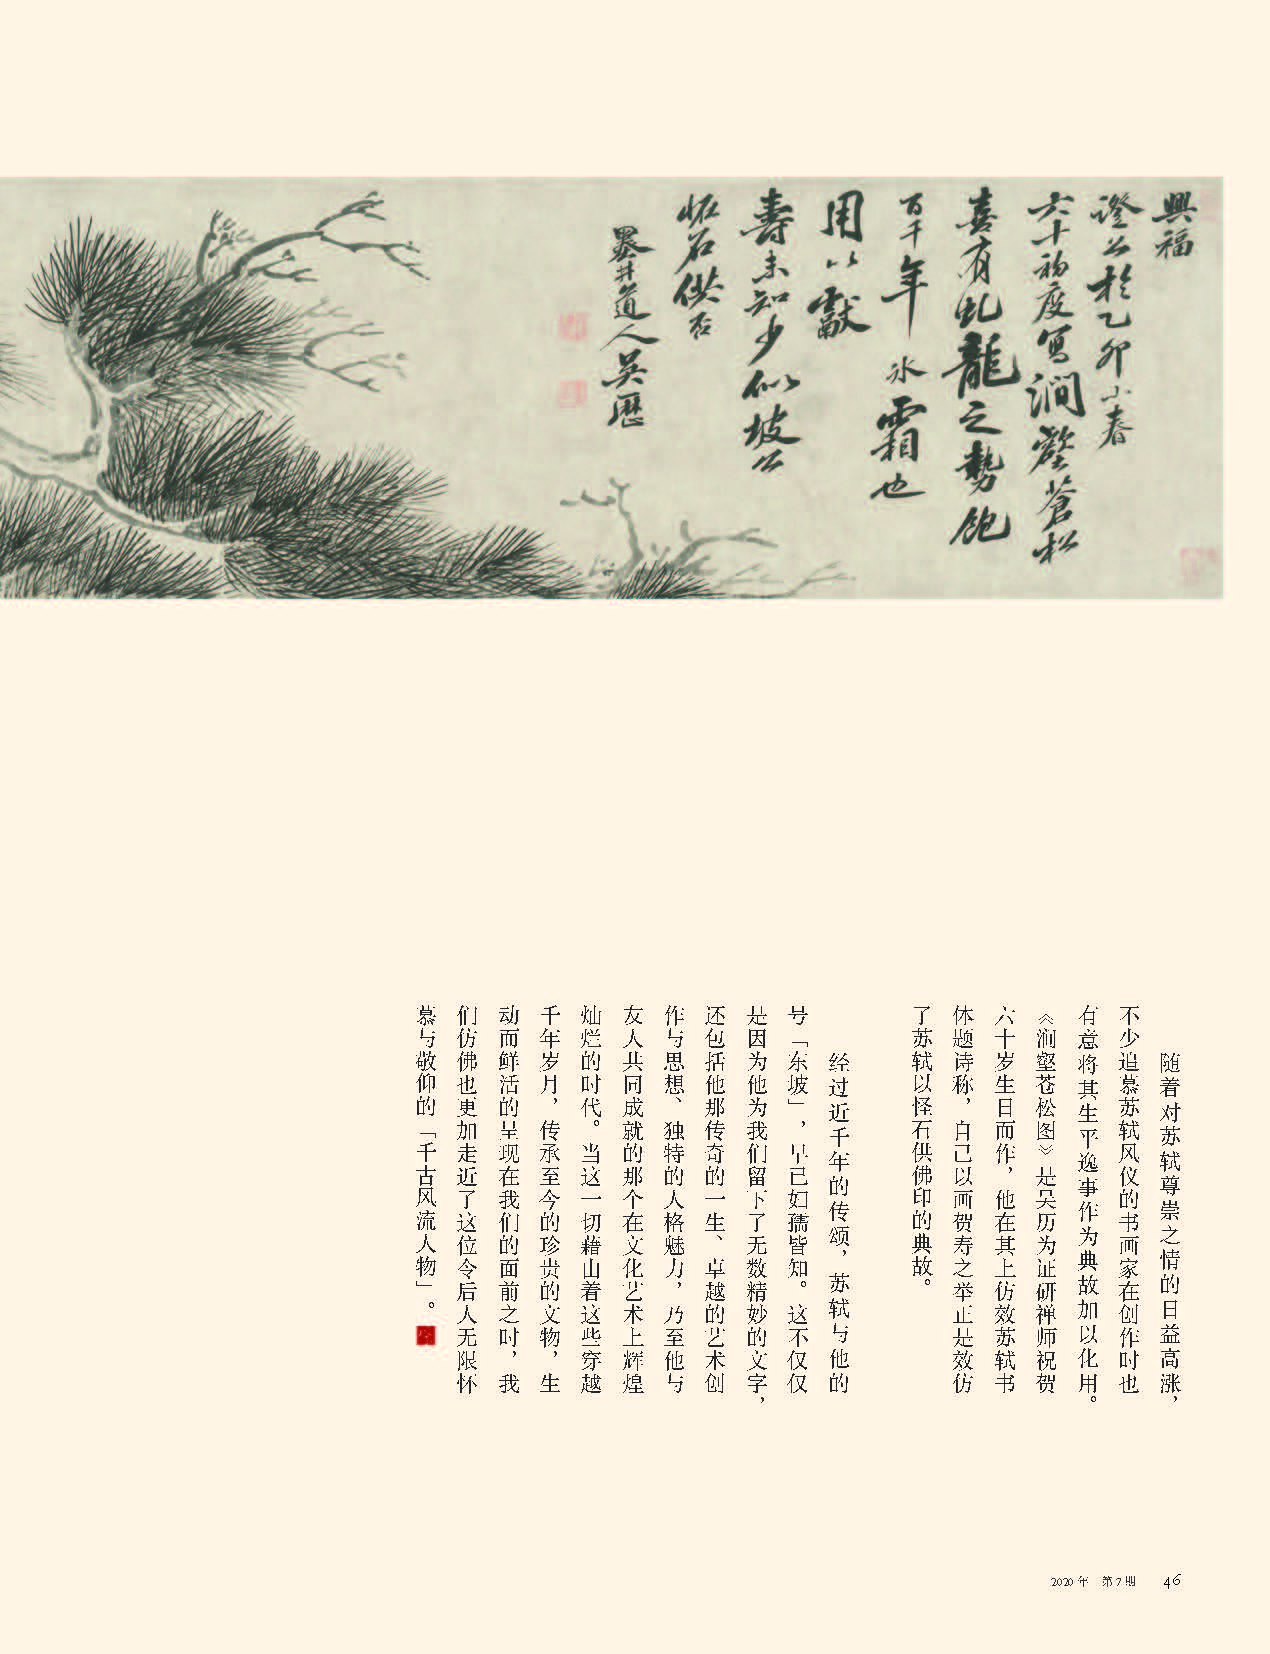 興福
證公於乙卯小春
六十初度寫澗壑蒼松
喜有虬龍之勢飽
百千年冰霜也
用以獻
壽未知少似坡公
怪石供否
墨井道人吳歷
随着对苏轼尊崇之情的日益高涨，
不少追慕苏轼风仪的书画家在创作时也
有意将其生平逸事作为典故加以化用。
《涧壑苍松图》是吴历为证研禅师祝贺
六十岁生日而作，他在其上仿效苏轼书
体题诗称，自己以画贺寿之举正是效仿
了苏轼以怪石供佛印的典故。
经过近千年的传颂，苏轼与他的
号「东坡」，早已如孺皆知。这不仅仅
是因为他为我们留下了无数精妙的文字，
还包括他那传奇的一生、卓越的艺术创
作与思想、独特的人格魅力，乃至他与
友人共同成就的那个在文化艺术上辉煌
灿烂的时代。当这一切藉由着这些穿越
千年岁月，传承至今的珍贵的文物，生
动而鲜活的呈现在我们的面前之时，我
们仿佛也更加走近了这位令后人无限怀
慕与敬仰的「千古风流人物」。
2020年 第7期 46